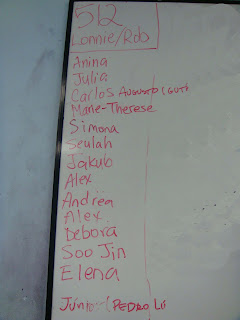 512
Lonnie/Rob
Anina
Julia
Carlos Augusto
Marie-Therese
Simona
Seulah
Jakub
Alex
Andrea
Alex
Debora
Soo Jin
Elena
Junior (PEDRO